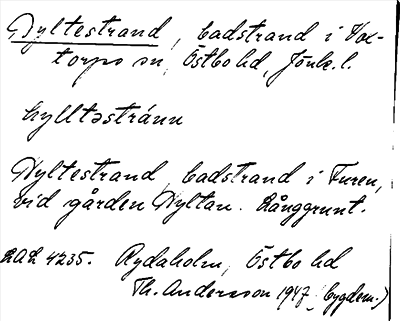 Hyltestrand, badstrand i Vox-
torps sn, Östbo hd, Jönk. l.
hylltəstránn
Hyltestrand, badstrand i Furen,
vid gården Hyltan. Långgrunt.
RAÄ 4235. Rydaholm, Östbo hd
Th. Andersson 1947 (bygdem.)